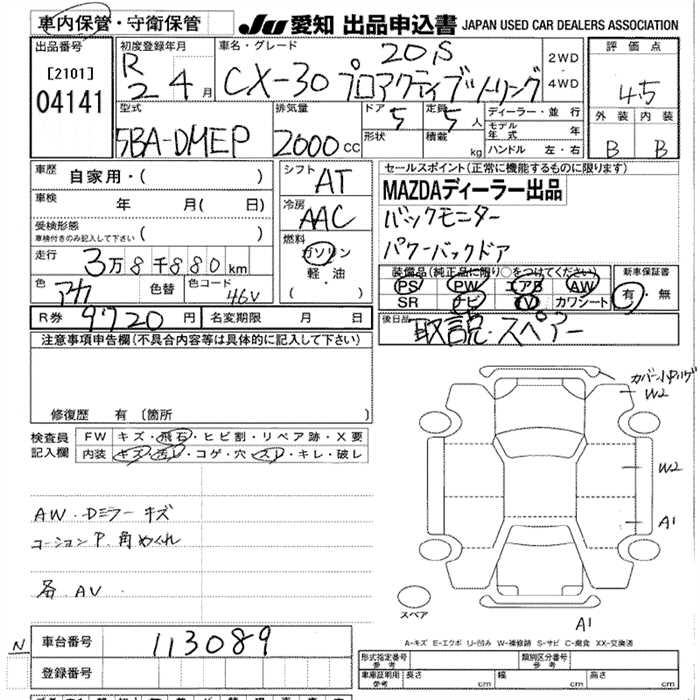 車内保管・守衛保管
JU 愛知 出品申込書 JAPAN USED CAR DEALERS ASSOCIATION
出品番号
[2101]
04141
初度登録年月
R2 4月
車名・グレード
20S
CX-30 プロアクティブツーリング
2WD
・
4WD
評価点
4.5
外装 内装
B B
型式
5BA-DMEP
排気量
2000 cc
ドア 5
形状
定員 5人
積載 kg
ディーラー・並行
モデル年式 年
ハンドル 左・右
車歴
自家用・( )
車検
年 月( 日)
受検形態
車検付きのみ記入して下さい ( )
走行 3万8千880km
色 アカ 色替 色コード 46V
R券 9720円 名変期限 月 日
シフト
AT
冷房
AAC
燃料
ガソリン
軽・油
( ・ )
セールスポイント(正常に機能するものに限ります)
MAZDAディーラー出品
バックモニター
パワーバックドア
装備品(純正品に限り○をつけてください)
PS PW エアB AW
SR ナビ TV カワシート
新車保証書
有・無
後日品
取説・スペアー
注意事項申告欄(不具合内容等は具体的に記入して下さい)
修復歴 有 〔箇所 〕
検査員記入欄
FW キズ・飛石・ヒビ割・リペア跡・X要
内装 キズ・汚レ・コゲ・穴・スレ・キレ・破レ
AW・Dミラーキズ
コーションP.角めくれ
各AV
W2
W2
A1
A1
スペア
A-キズ E-エクボ U-凹み W-補修跡 S-サビ C-腐食 XX-交換済
N
車台番号 113089
登録番号
形式指定番号 参考
類別区分番号 参考
車庫証明用 参考 長さ cm 幅 cm 高さ cm